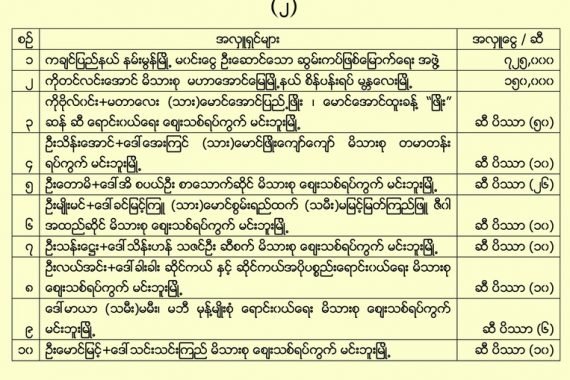 (၂)
စဉ် အလှူရှင်များ အလှူငွေ / ဆီ
၁ ကချင်ပြည်နယ် နမ်းမွန်မြို့ မပင်းငွေ ဦးဆောင်သော ဆွမ်းကပ်ဖြစ်မြောက်ရေး အဖွဲ့ ၇၂၅,၀၀၀
၂ ကိုတင်လင်းအောင် မိသားစု မဟာအောင်မြေမြို့နယ် စိန်ပန်းရပ် မန္တလေးမြို့ ၁၅၀,၀၀၀
ကိုဗိုလ်ဂင်း+မတာလေး (သား)မောင်အောင်ပြည့်ဖြိုး ၊ မောင်အောင်ထူးခန့် “ဖြိုး”
၃ ဆန် ဆီ ရောင်းဝယ်ရေး ဈေးသစ်ရပ်ကွက် မင်းဘူးမြို့ ဆီ ပိဿာ (၅၀)
ဦးသိန်းအောင်+ဒေါ်အေးကြင် (သား)မောင်ဖြိုးကျော်ကျော် မိသားစု တမာတန်း
၄ ရပ်ကွက် မင်းဘူးမြို့ ဆီ ပိဿာ (၁၀)
၅ ဦးတောမိ+ဒေါ်အိ စပယ်ဦး စာသောက်ဆိုင် မိသားစု ဈေးသစ်ရပ်ကွက် မင်းဘူးမြို့ ဆီ ပိဿာ (၂၆)
ဦးမျိုးမင်+ဒေါ်ခင်မြင့်ကြူ (သား)မောင်စွမ်းရည်ထက် (သမီး)မမြင့်မြတ်ကြည်ဖြူ ဇီဝါ
၆ အထည်ဆိုင် မိသားစု ဈေးသစ်ရပ်ကွက် မင်းဘူးမြို့ ဆီ ပိဿာ (၁၀)
၇ ဦးသန်းဌေး+ဒေါ်သိန်းဟန် သဇင်ဦး ဆီစက် မိသားစု ဈေးသစ်ရပ်ကွက် မင်းဘူးမြို့ ဆီ ပိဿာ (၁၀)
ဦးလယ်အင်း+ဒေါ်ခါးခါး ဆိုင်ကယ် နှင့် ဆိုင်ကယ်အပိုပစ္စည်းရောင်းဝယ်ရေး မိသားစု
၈ ဈေးသစ်ရပ်ကွက် မင်းဘူးမြို့ ဆီ ပိဿာ (၁၀)
ဒေါ်မာယာ (သမီး)မမီး၊ မဘီ မုန့်မျိုးစုံ ရောင်းဝယ်ရေး မိသားစု ဈေးသစ်ရပ်ကွက်
၉ မင်းဘူးမြို့ ဆီ ပိဿာ (၆)
၁၀ ဦးမောင်မြင့်+ဒေါ်သင်းသင်းကြည် မိသားစု ဈေးသစ်ရပ်ကွက် မင်းဘူးမြို့ ဆီ ပိဿာ (၁၀)